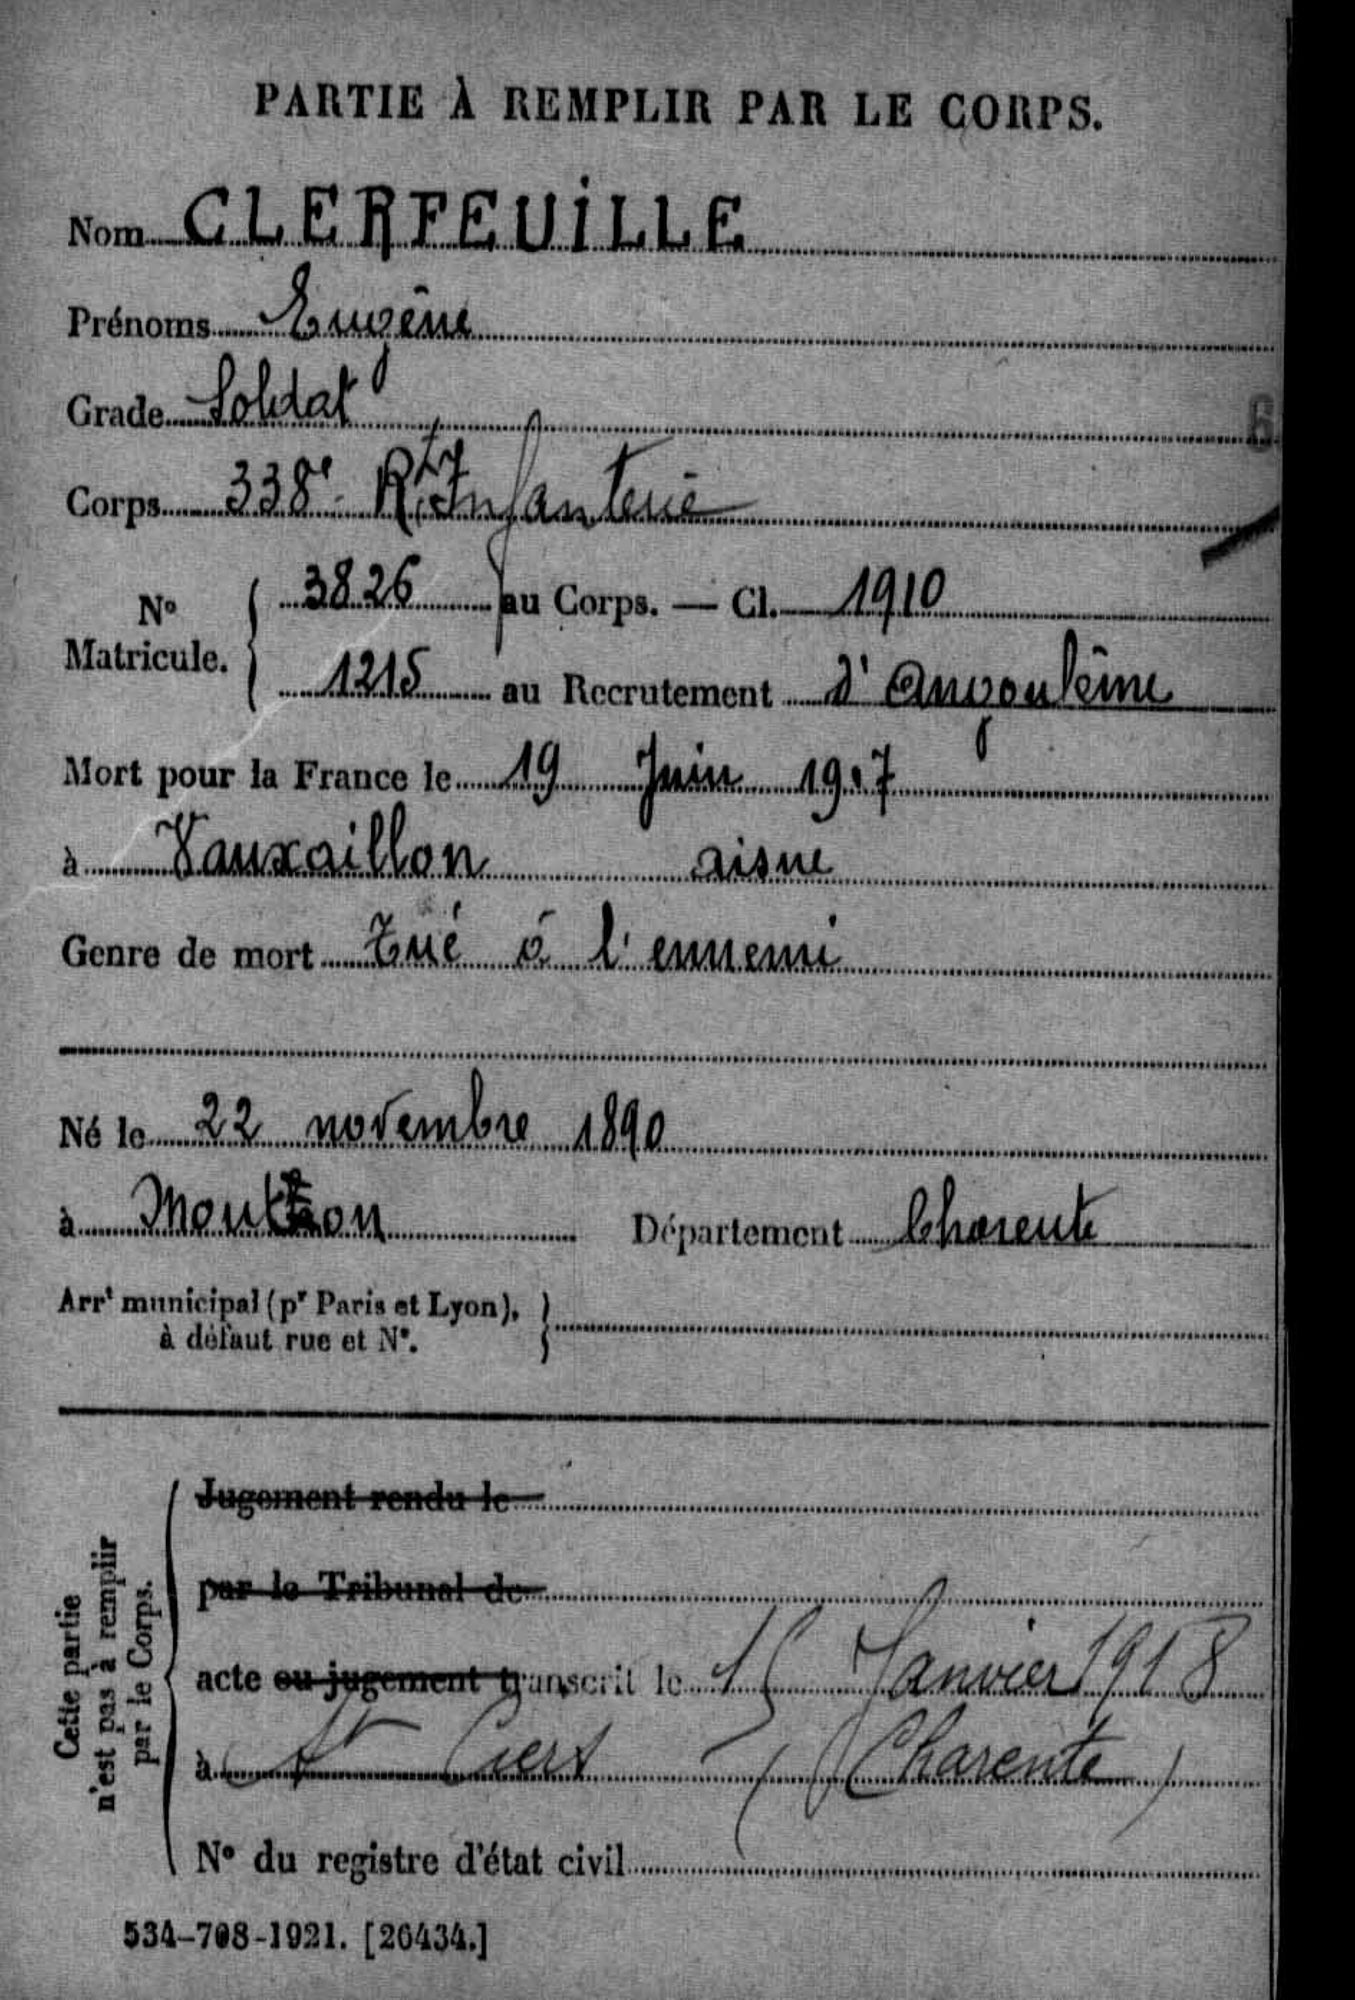 PARTIE À REMPLIR PAR LE CORPS.
Nom CLERFEUILLE
Prénoms Eugène
Grade Soldat
6
Corps 338e Rt Infanterie
No Matricule. 3826 au Corps. — Cl. 1910
1215 au Recrutement d'Angoulême
Mort pour la France le 19 Juin 1917
à Vauxaillon aisne
Genre de mort Tué à l'ennemi
Né le 22 novembre 1890
à Département Charente
Arrt municipal (pr Paris et Lyon),
à défaut rue et No.
Cette partie
n'est pas à remplir
par le Corps.
Jugement rendu le
par le Tribunal de
acte ou jugement transcrit le 15 Janvier 1918
à St Ciers (Charente)
No du registre d'état civil
534-708-1921. [26434.]